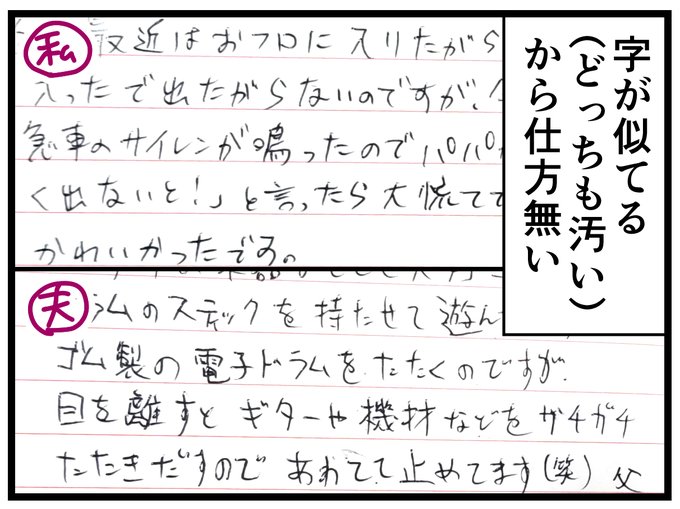 字が似てる
(どっちも汚い)
から仕方無い
私
最近はおフロに入りたがら
入ったで出たがらないのですが、
急車のサイレンが鳴ったのでパパが
く出ないと!」と言ったら大慌てで
かわいかったです。
夫
ラムのスティックを持たせて遊ん
ゴム製の電子ドラムをたたくのですが
目を離すとギターや機材などをガチガチ
たたきだすのであわてて止めてます(笑) 父